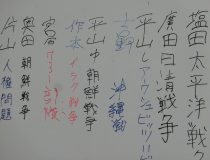 塩田 太平洋戦争
廣田 日清戦争
平山し アウシュビッツ
吉野 沖縄戦
平山中 朝鮮戦争
作本 イラク戦争
宮宕
奥田 朝鮮戦争
片山 人種問題